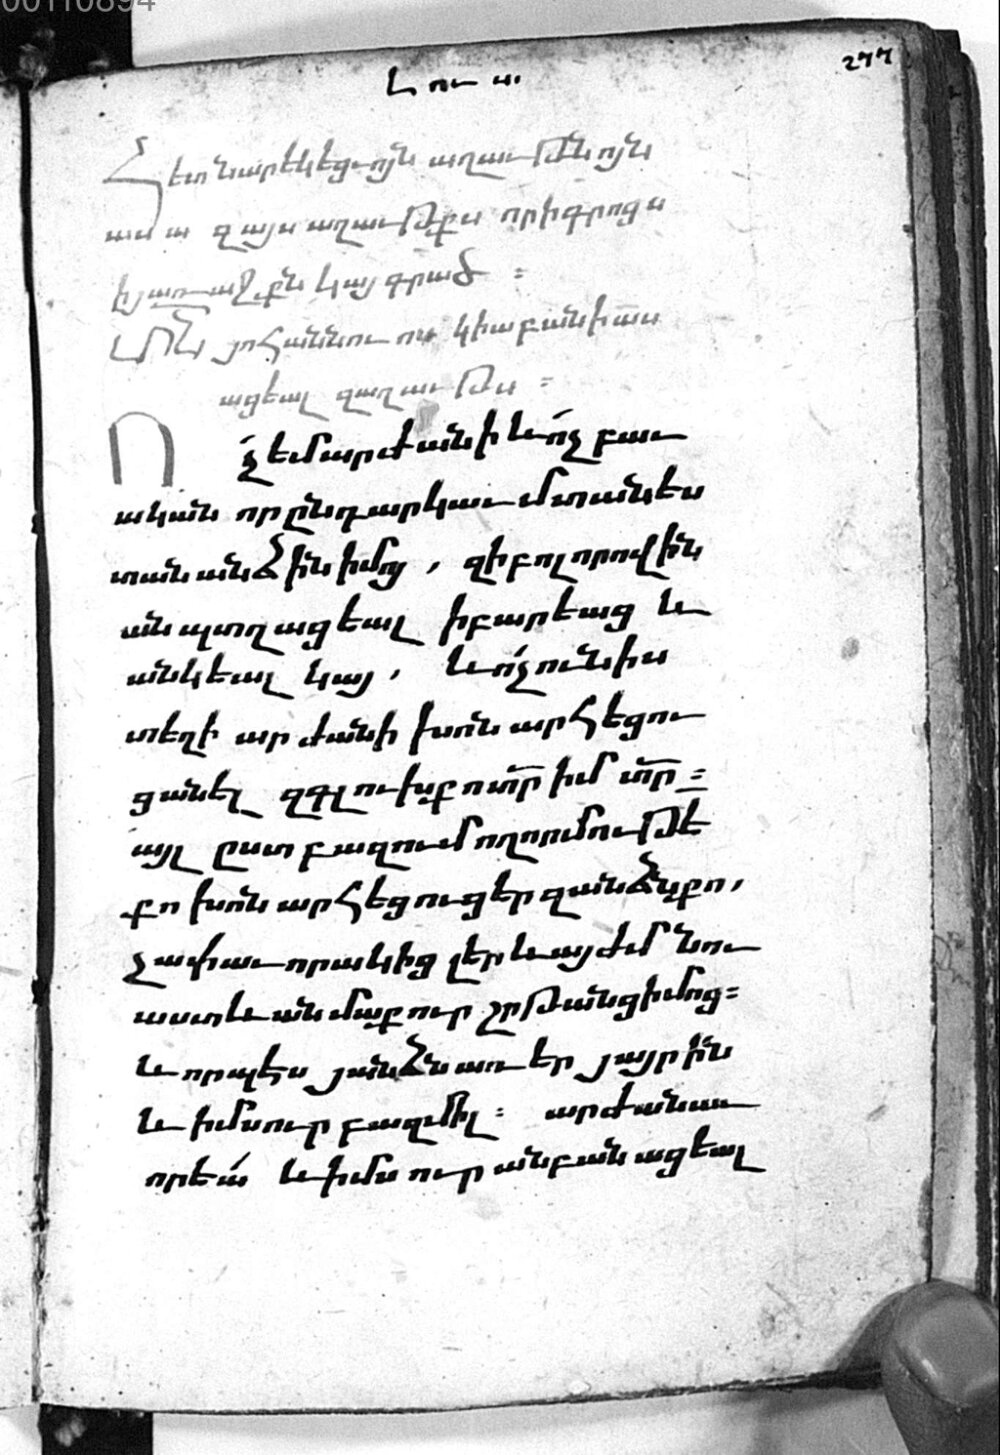 00110894
277
Հետ նարեկեցւոյն աղաւթնոյն
ասա զայս աղաւթքս որիգրոցս
իյառաջքն կայ գրած :
Սրբն յոհաննու ոսկիաբանի աս
ացեալ զաղաւթս :
Ո չ եմ արժանի և ոչ բաւ
ական որ ընդ արկաւ մտանես
տան անձին իմոյ, զի բոլորովին
անպտղացեալ ի բարեաց և
անկեալ կայ, և ոչ ունիս
տեղի արժանի խոնարհեցու
ցանել զգլուխ քո տր իմ տր :
այլ ըստ բազում ողորմութե
քո խոնարհեցուցեր զանձն քո,
չափաւորակից լեր և այժմ նու
աստևան մաքուր շրթանց իմոց :
և որպես յանձն առեր յայրին
և իմսուր բազմիլ : արժանաւ
որեա և իմսուր անբանացեալ